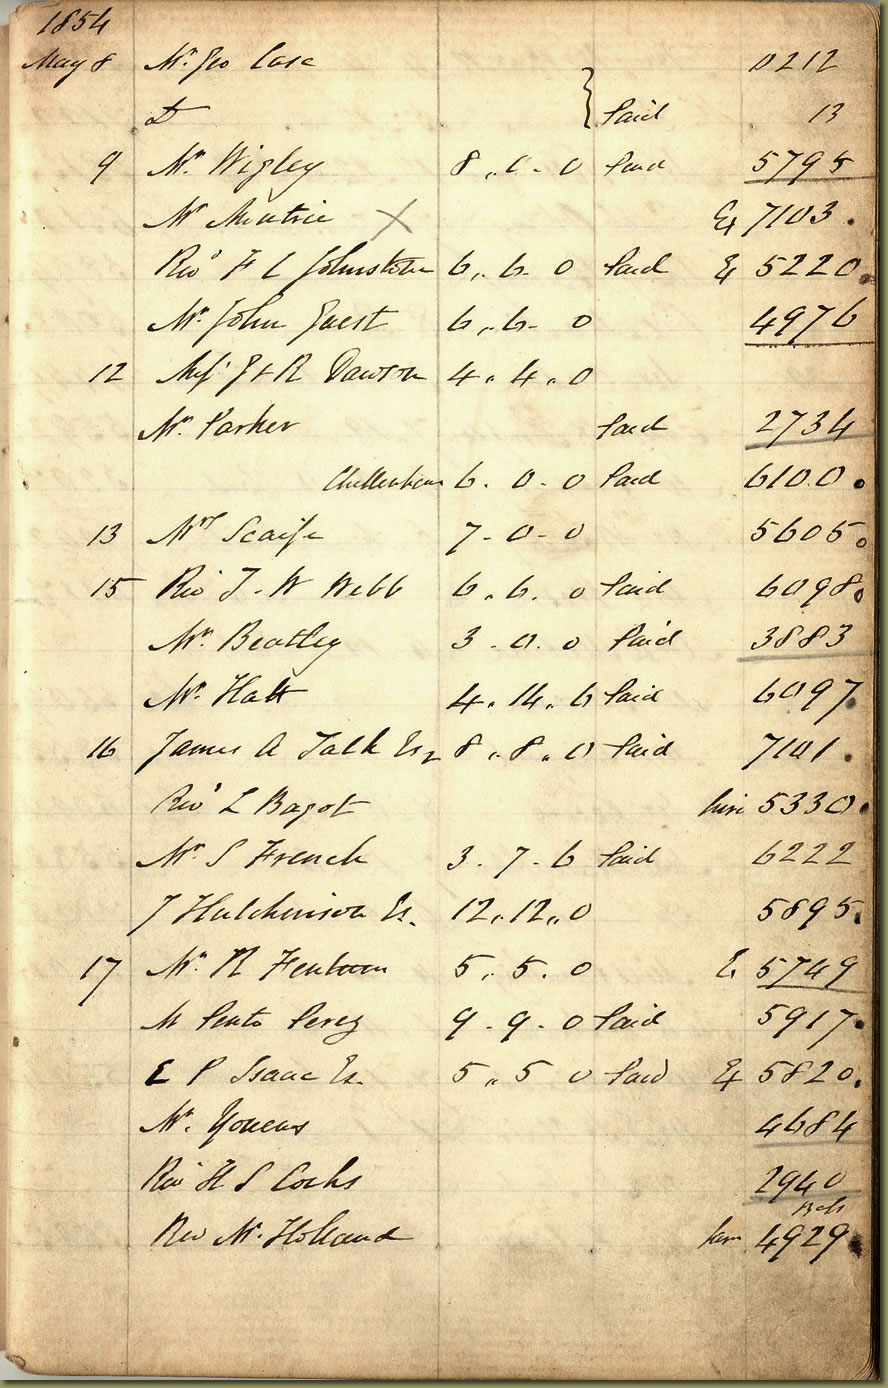 1854
May 8 Mr. Geo Case 10212
Do } Paid 13
9 Mr. Wigley 8 „ 0 - 0 Paid 5795
Mr X Ex 7103 .
Revd F C Johnstone 6 „ 6 - 0 Paid Ex 5220 .
Mr. John Guest 6 „ 6 - 0 4976
12 J & R Dawson 4 „ 4 „ 0
Mr. Parker Paid 2734
Cheltenham 6 - 0 - 0 Paid 6100 .
13 Mrs Scaife 7 - 0 - 0 5605 .
15 Rev T. W Webb 6 „ 6 . 0 Paid 6098 .
Mr. Beatley 3 - 0 . 0 Paid 3883
Mr. Hatt 4 „ 14 „ 6 Paid 6097 .
16 James A Talk Esq 8 „ 8 „ 0 Paid 7101 .
Revd L Bagot hire 5330 .
Mr. S French 3 - 7 - 6 Paid 6222
T Hutchinson Es. 12 „ 12 „ 0 5895 .
17 Mr. R Fenton 5 „ 5 . 0 E. 5749
M Pinto Perez 9 - 9 - 0 Paid 5917 .
E P Isaac Es. 5 „ 5 0 Paid Ex 5820 .
Mr. Youens 4684
Rev H S Cocks 2940
Rev Mr. Holland 4929